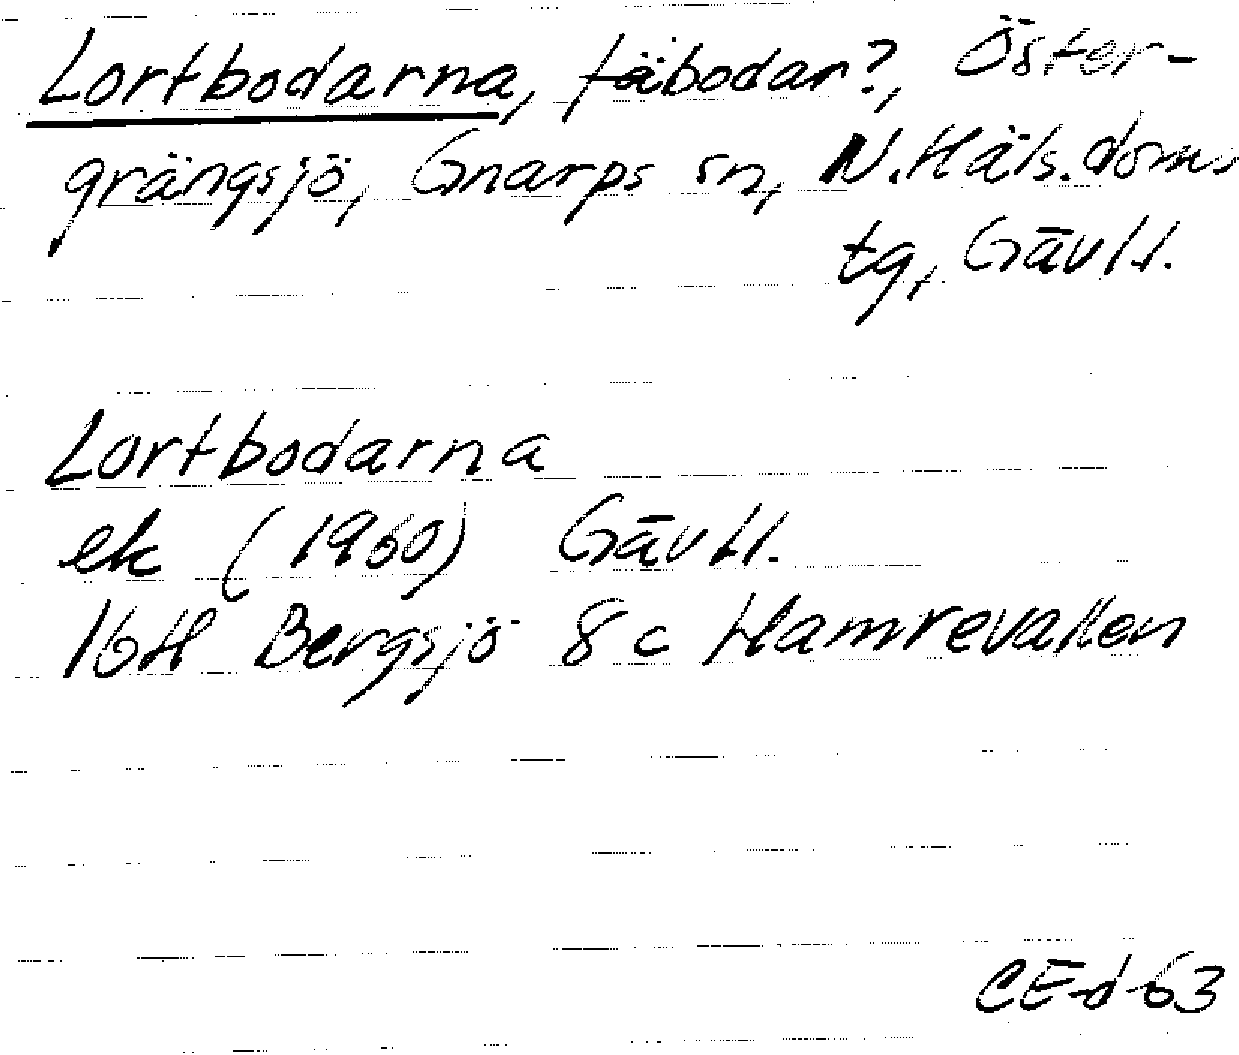 Lortbodarna, fäbodar?, Öster-
grängsjö, Gnarps sn, N. Häls. doms
tg, Gävl l.
Lortbodarna
ek (1960) Gävl l.
16H Bergsjö 8c Hamrevallen
CEd 63